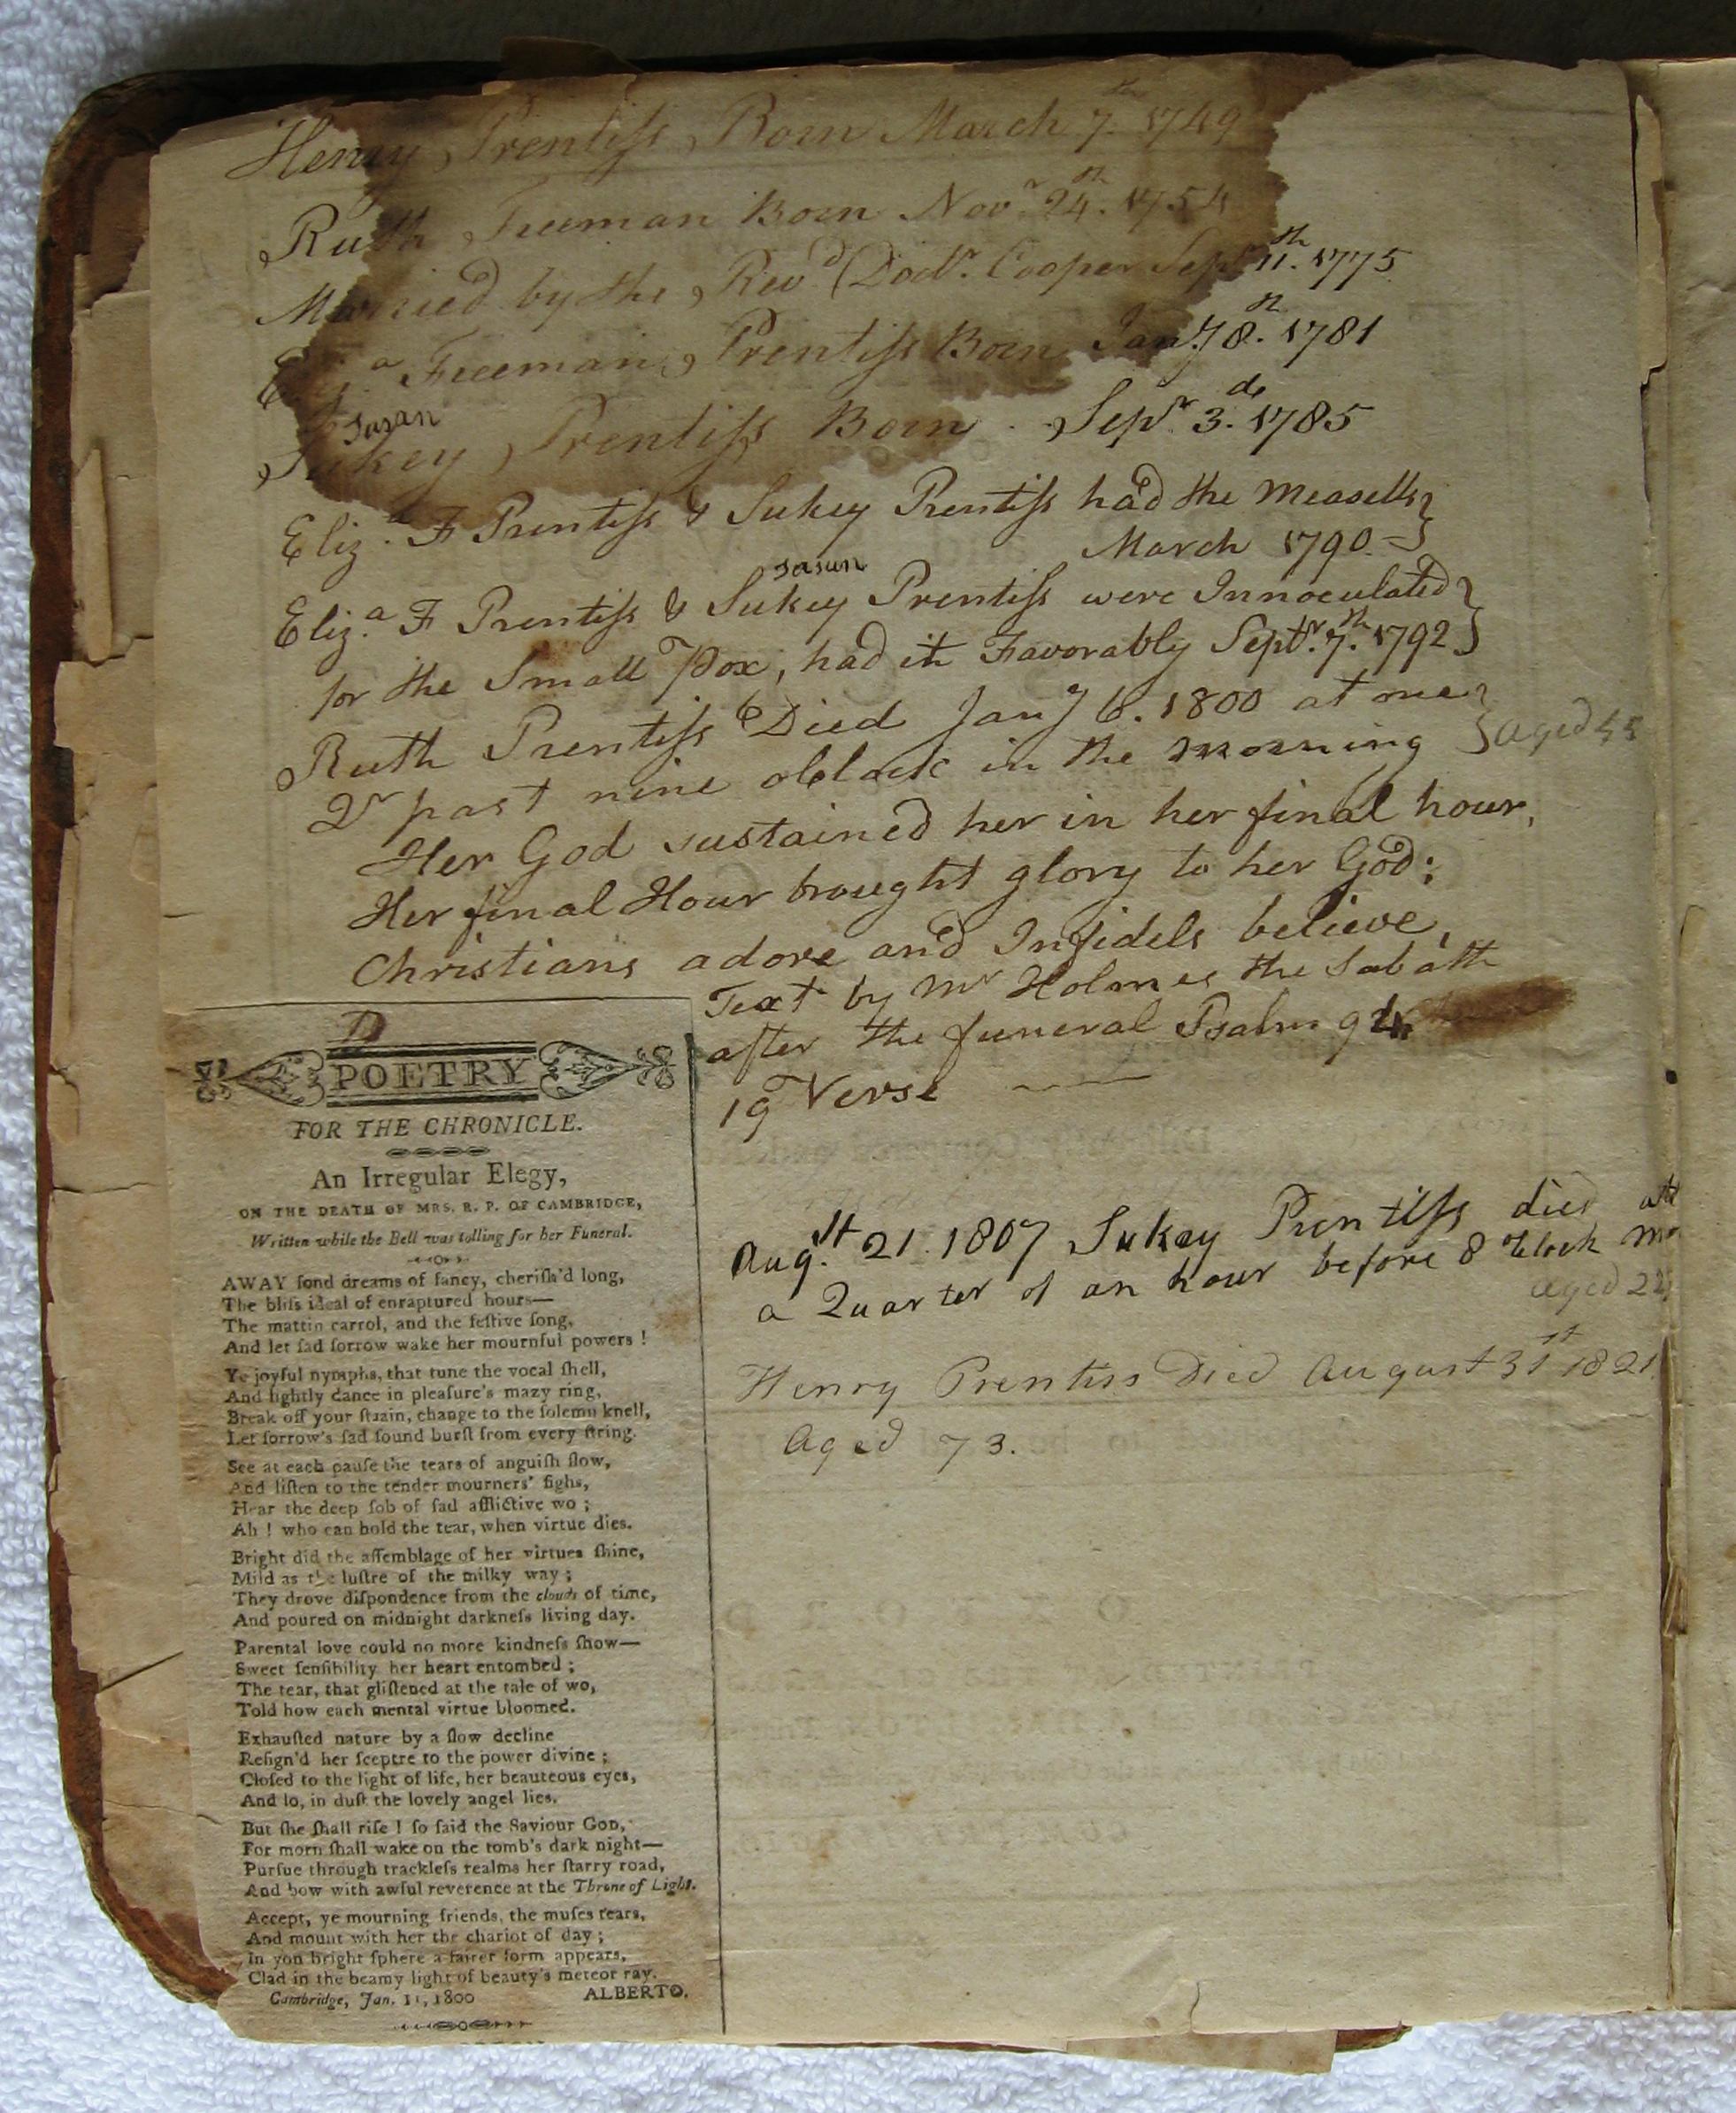 Henry Prentiſs Born March 7.th 1749
Ruth Freeman Born Novr. 24.th 1754
Married by the Revd. Doctr. Cooper Sepr 11.th 1775
Eliz.a Freeman Prentiſs Born Jany 8.th 1781
Susan
Sukey Prentiſs Born Sepr. 3.de 1785
Eliz.a F Prentiſs & Sukey Prentiſs had the Measells
March 1790
Susan
Eliz.a F Prentiſs & Sukey Prentiſs were Innoculated
for the Small Pox, had it Favorably Septr. 7.th 1792
Ruth Prentiſs Died Jany 6. 1800 at one
Qr past nine oClock in the morning aged 45
Her God sustained her in her final hour,
Her final Hour brought glory to her God;
Christians adore and Infidels believe,
Text by Mr Holmes the Sabath
after the funeral Psalm 94
19 Verse
POETRY
FOR THE CHRONICLE.
An Irregular Elegy,
ON THE DEATH OF MRS. R. P. OF CAMBRIDGE,
Written while the Bell was tolling for her Funeral.
AWAY fond dreams of fancy, cheriſh'd long,
The bliſs ideal of enraptured hours—
The mattin carrol, and the feſtive ſong,
And let ſad ſorrow wake her mournful powers !
Ye joyful nymphs, that tune the vocal ſhell,
And lightly dance in pleaſure's mazy ring,
Break off your ſtrain, change to the ſolemn knell,
Let ſorrow's ſad ſound burſt from every ſtring.
See at each pauſe the tears of anguiſh flow,
And liſten to the tender mourners' ſighs,
Hear the deep ſob of ſad afflictive wo ;
Ah ! who can hold the tear, when virtue dies.
Bright did the aſſemblage of her virtues ſhine,
Mild as the luſtre of the milky way ;
They drove diſpondence from the clouds of time,
And poured on midnight darkneſs living day.
Parental love could no more kindneſs ſhow—
Sweet ſenſibility her heart entombed ;
The tear, that gliſtened at the tale of wo,
Told how each mental virtue bloomed.
Exhauſted nature by a ſlow decline
Reſign'd her ſceptre to the power divine ;
Cloſed to the light of life, her beauteous eyes,
And lo, in duſt the lovely angel lies.
But ſhe ſhall riſe ! ſo ſaid the Saviour GOD,
For morn ſhall wake on the tomb's dark night—
Purſue through trackleſs realms her ſtarry road,
And bow with awful reverence at the Throne of Light.
Accept, ye mourning friends, the muſes tears,
And mount with her the chariot of day ;
In yon bright ſphere a fairer form appears,
Clad in the beamy light of beauty's meteor ray.
Cambridge, Jan. 11, 1800 ALBERTO.
Augst. 21. 1807 Sukey Prentiſs died at
a Quarter of an hour before 8 oClock
aged 22
Henry Prentiss Died August 31st 1821
Aged 73.